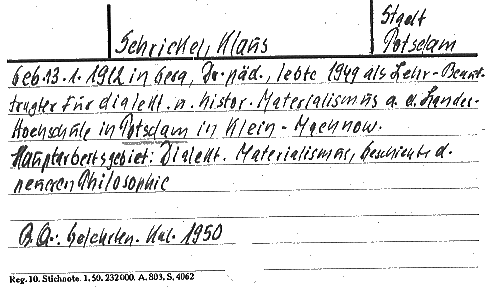 Stadt
Schrickel, Klaus Potsdam
geb. 13. 1. 1912 in Gera, Dr. päd., lebte 1949 als Lehr-Beauf-
tragter für dialekt. u. histor. Materialismus a. d. Landes-
Hochschule in Potsdam in Klein-Machnow.
Hauptarbeitsgebiet: Dialekt. Materialismus, Geschichte d.
neueren Philosophie
B. Qu.: Gelehrten. Kal. 1950
Reg. 10. Stichnote. 1. 50. 232000. A. 803. S. 4062